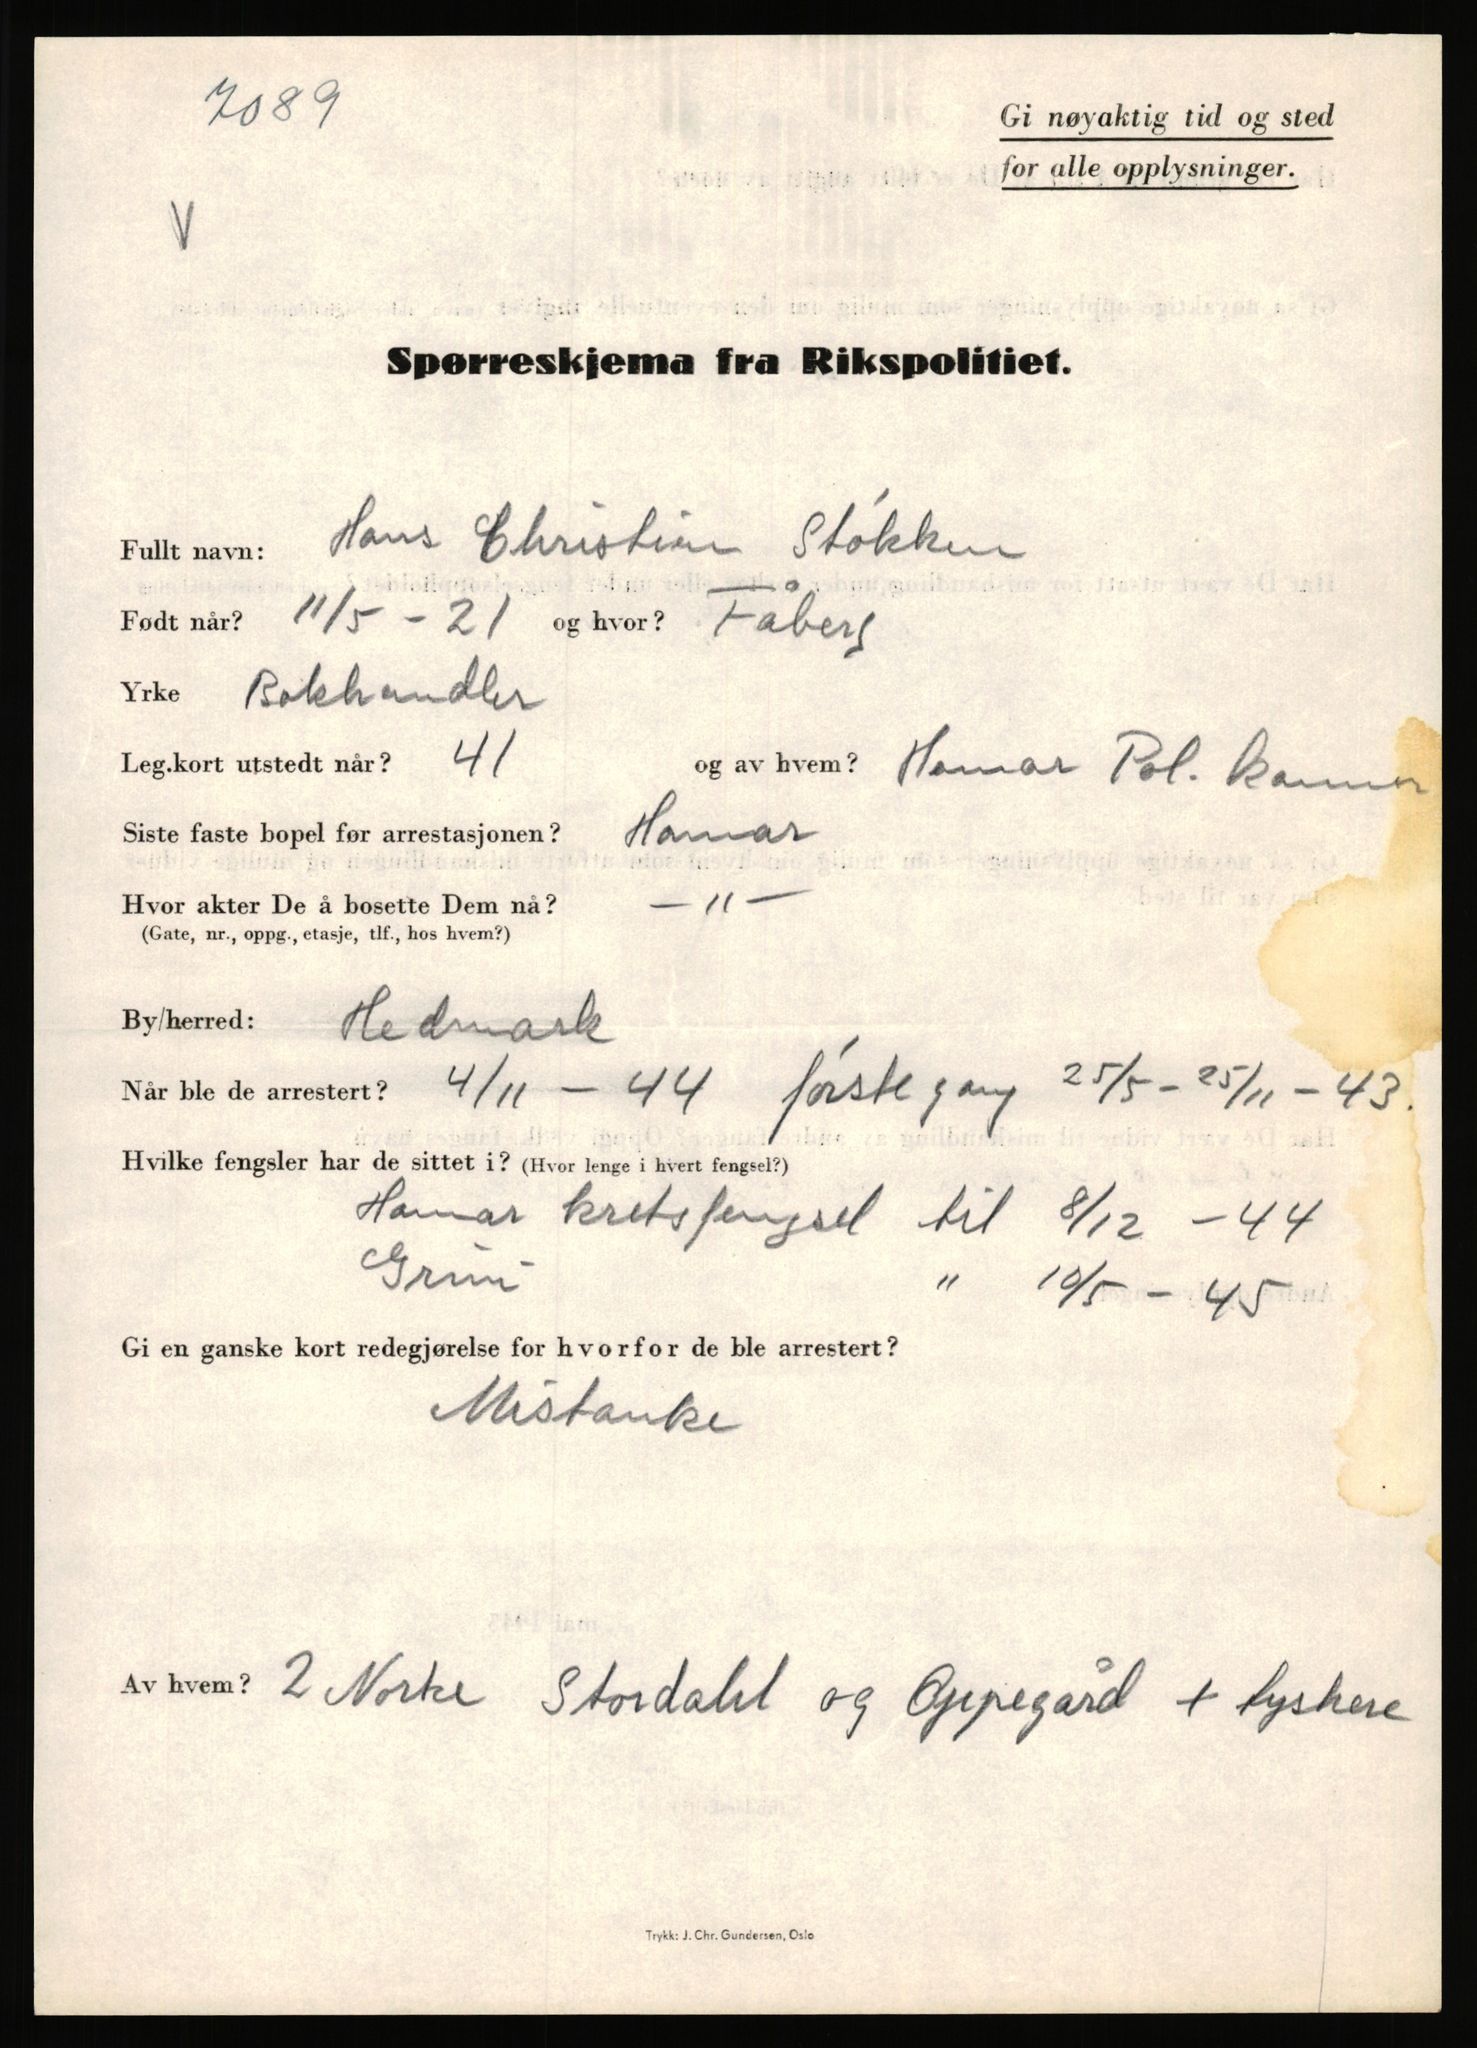 7089
Gi nøyaktig tid og sted
for alle opplysninger.
V
Spørreskjema fra Rikspolitiet.
Fullt navn: Hans Christian Støkken
Født når? 11/5 - 21 og hvor? Fåberg
Yrke Bokhandler
Leg.kort utstedt når? 41 og av hvem? Hamar Pol. kammer
Siste faste bopel før arrestasjonen? Hamar
Hvor akter De å bosette Dem nå? - " -
(Gate, nr., oppg., etasje, tlf., hos hvem?)
By/herred: Hedmark
Når ble de arrestert? 4/11 - 44 første gang 25/5 - 25/11 - 43.
Hvilke fengsler har de sittet i? (Hvor lenge i hvert fengsel?)
Hamar kretsfengsel til 8/12 - 44
Grini " 10/5 - 45
Gi en ganske kort redegjørelse for hvorfor de ble arrestert?
Mistanke
Av hvem? 2 Norke Stordahl og Oppegård + tyskere
Trykk: J. Chr. Gundersen, Oslo